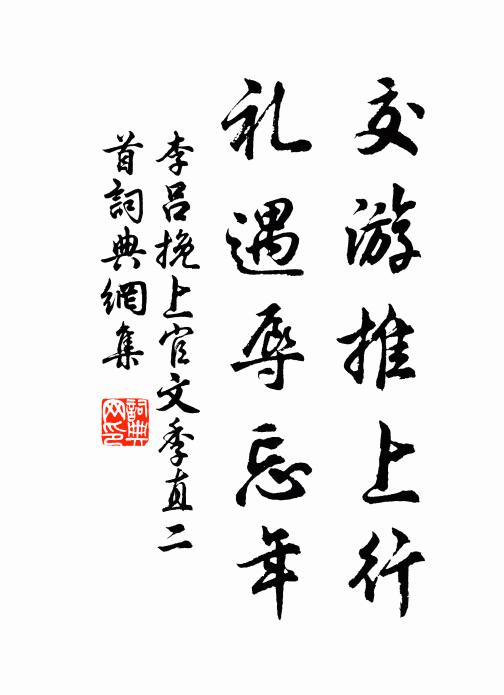 交游推上行
礼遇辱忘年
李吕挽上官文季直二
首詞典網集
詞典
网印